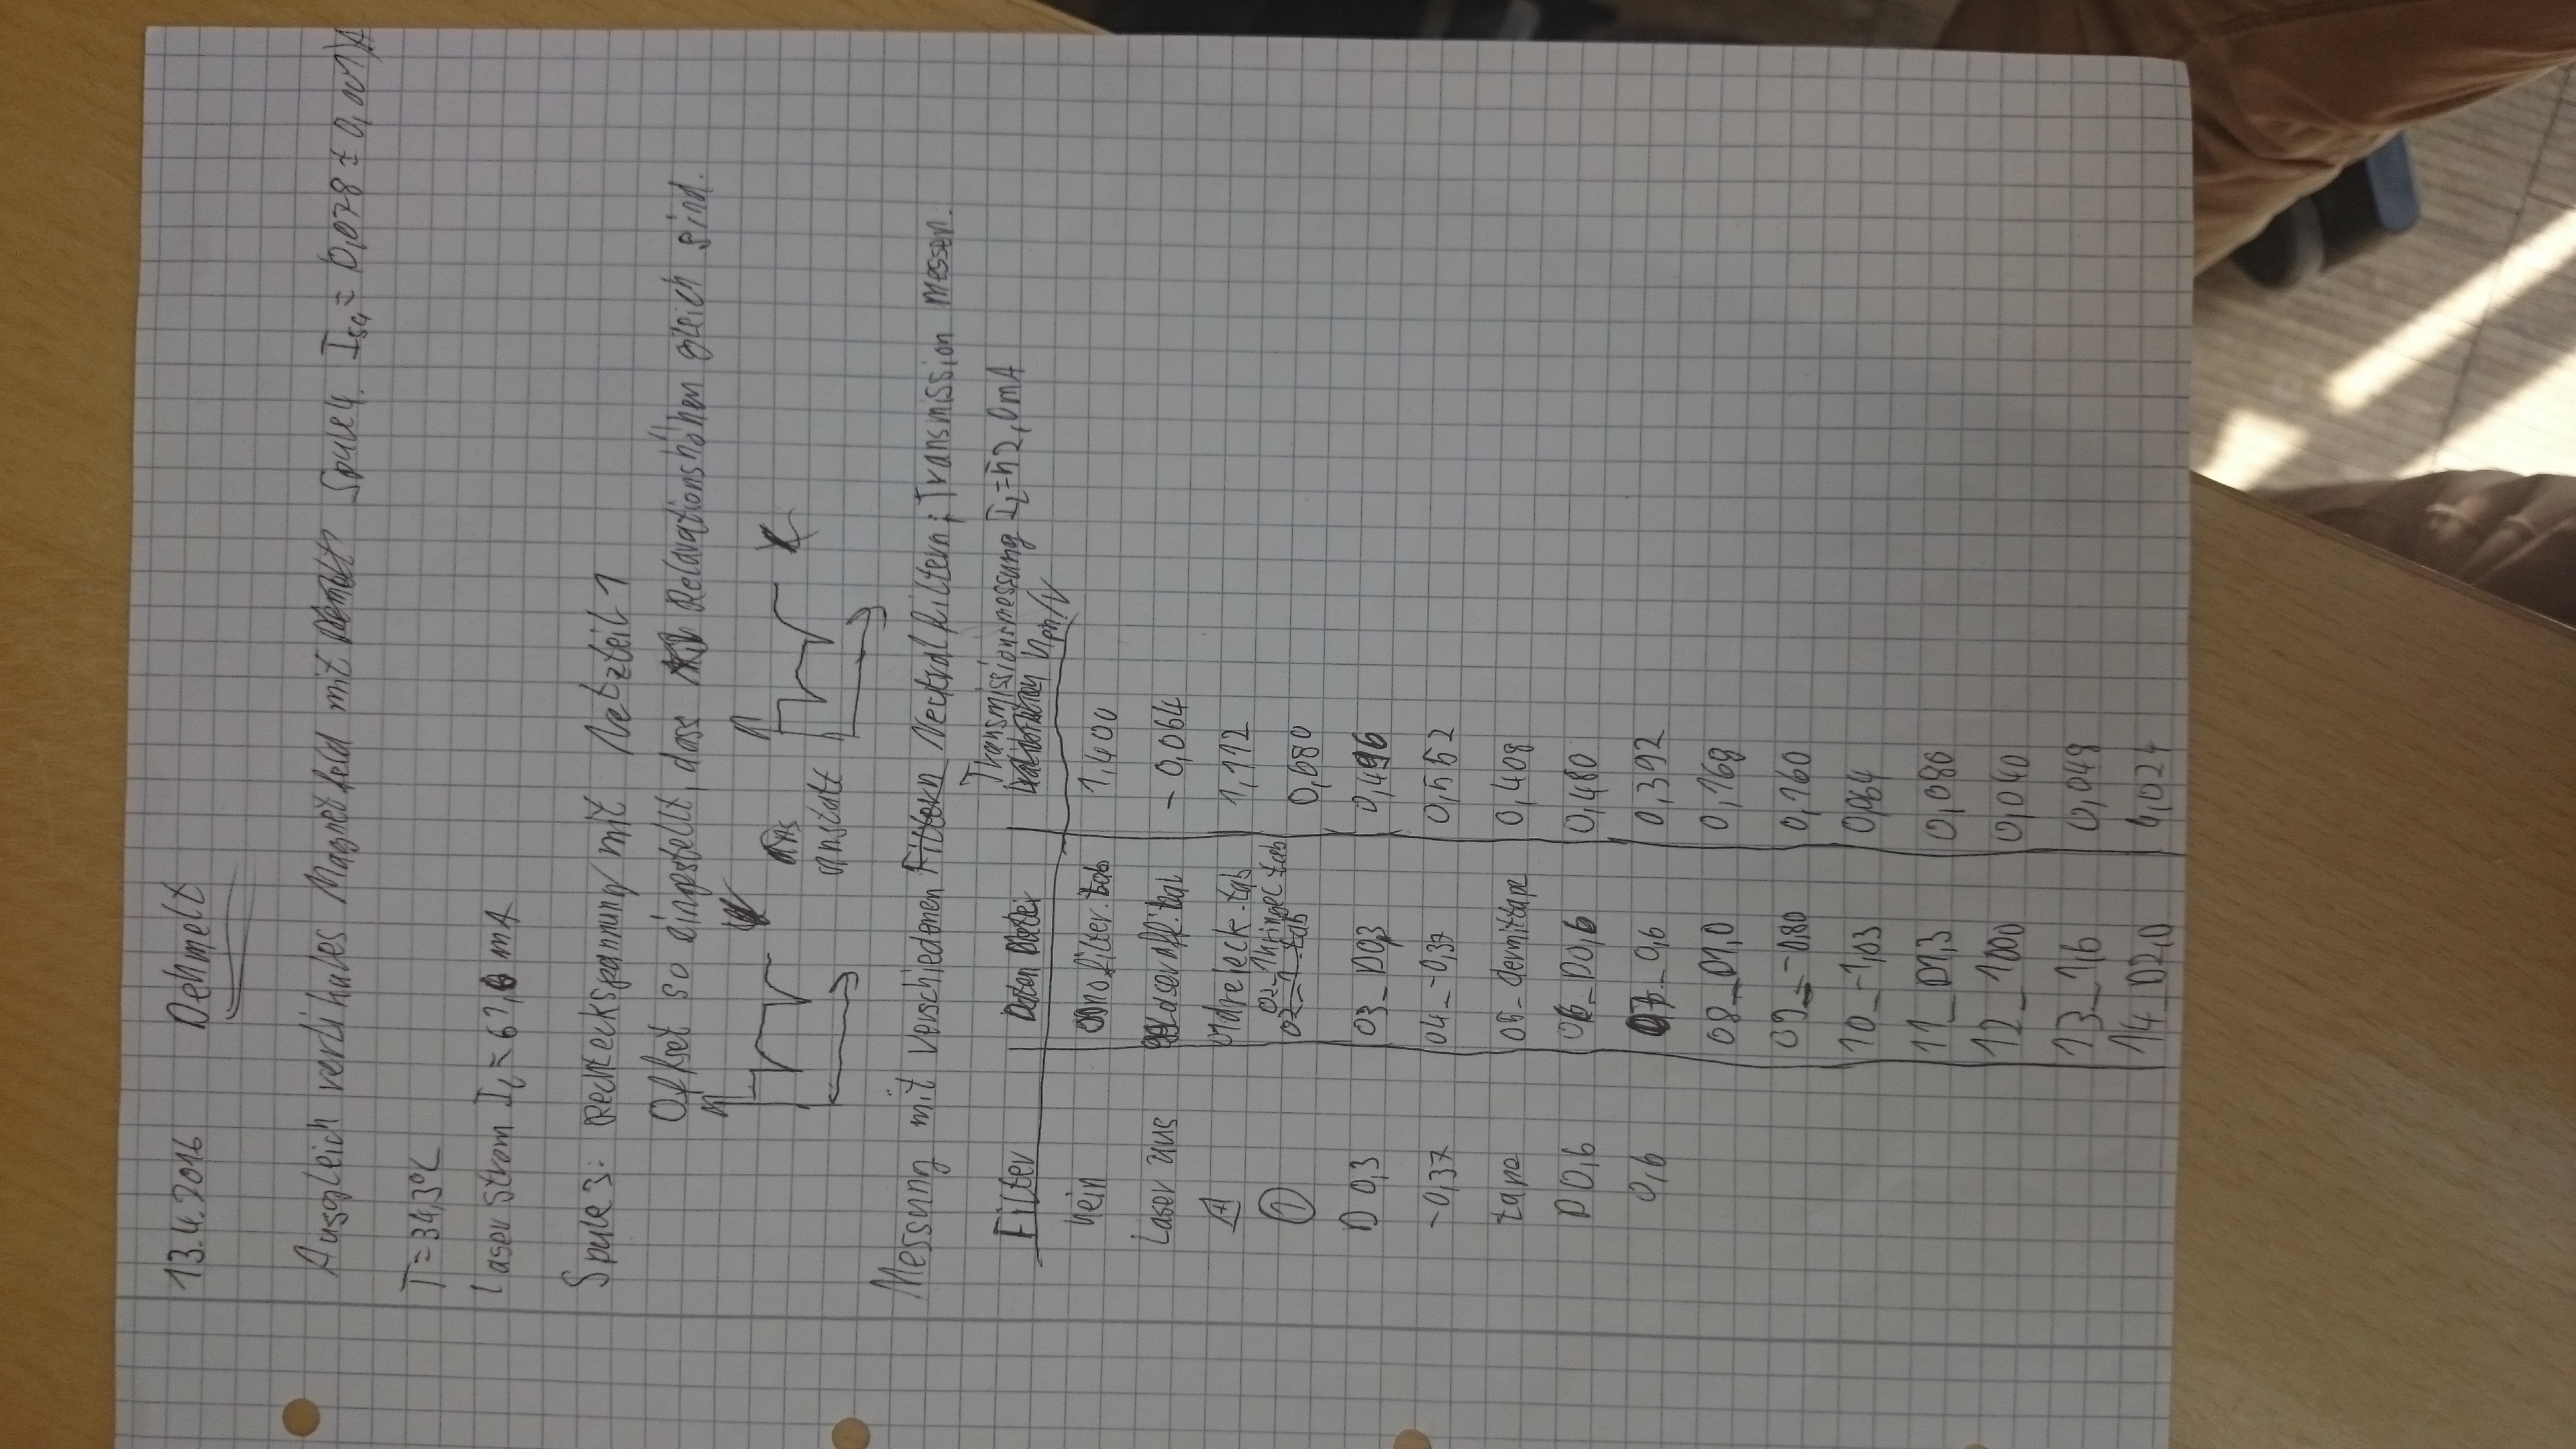 13.4.2016 Dehmelt
Ausgleich vertikales Magnetfeld mit Spule 4. I_S4 = (0,078 ± 0,001)A
T = 34,3°C
Laser Strom I_L = 61,6 mA
Spule 3: Rechteckspannung mit Netzteil 1
Offset so eingestellt, dass Relaxationshöhen gleich sind.
anstatt
Messung mit verschiedenen Filtern Neutralfiltern; Transmission messen.
Transmissionsmessung I_L = 52,0mA
Filter Daten Datei U_ph/V
kein nofilter.tab 1,400
Laser aus laseroff.tab - 0,064
01dreieck.tab 1,112
02_1kringel.tab
① 02_1.tab 0,680
D 0,3 03_D0,3 0,496
-0,37 04_-0,37 0,552
tape 05_dermittape 0,408
D 0,6 06_D0,6 0,480
0,6 07_0,6 0,392
08_D1,0 0,168
09_-0,80 0,160
10_-1,03 0,064
11_D1,3 0,080
12_1000 0,040
13_1,6 0,048
14_D2,0 0,024